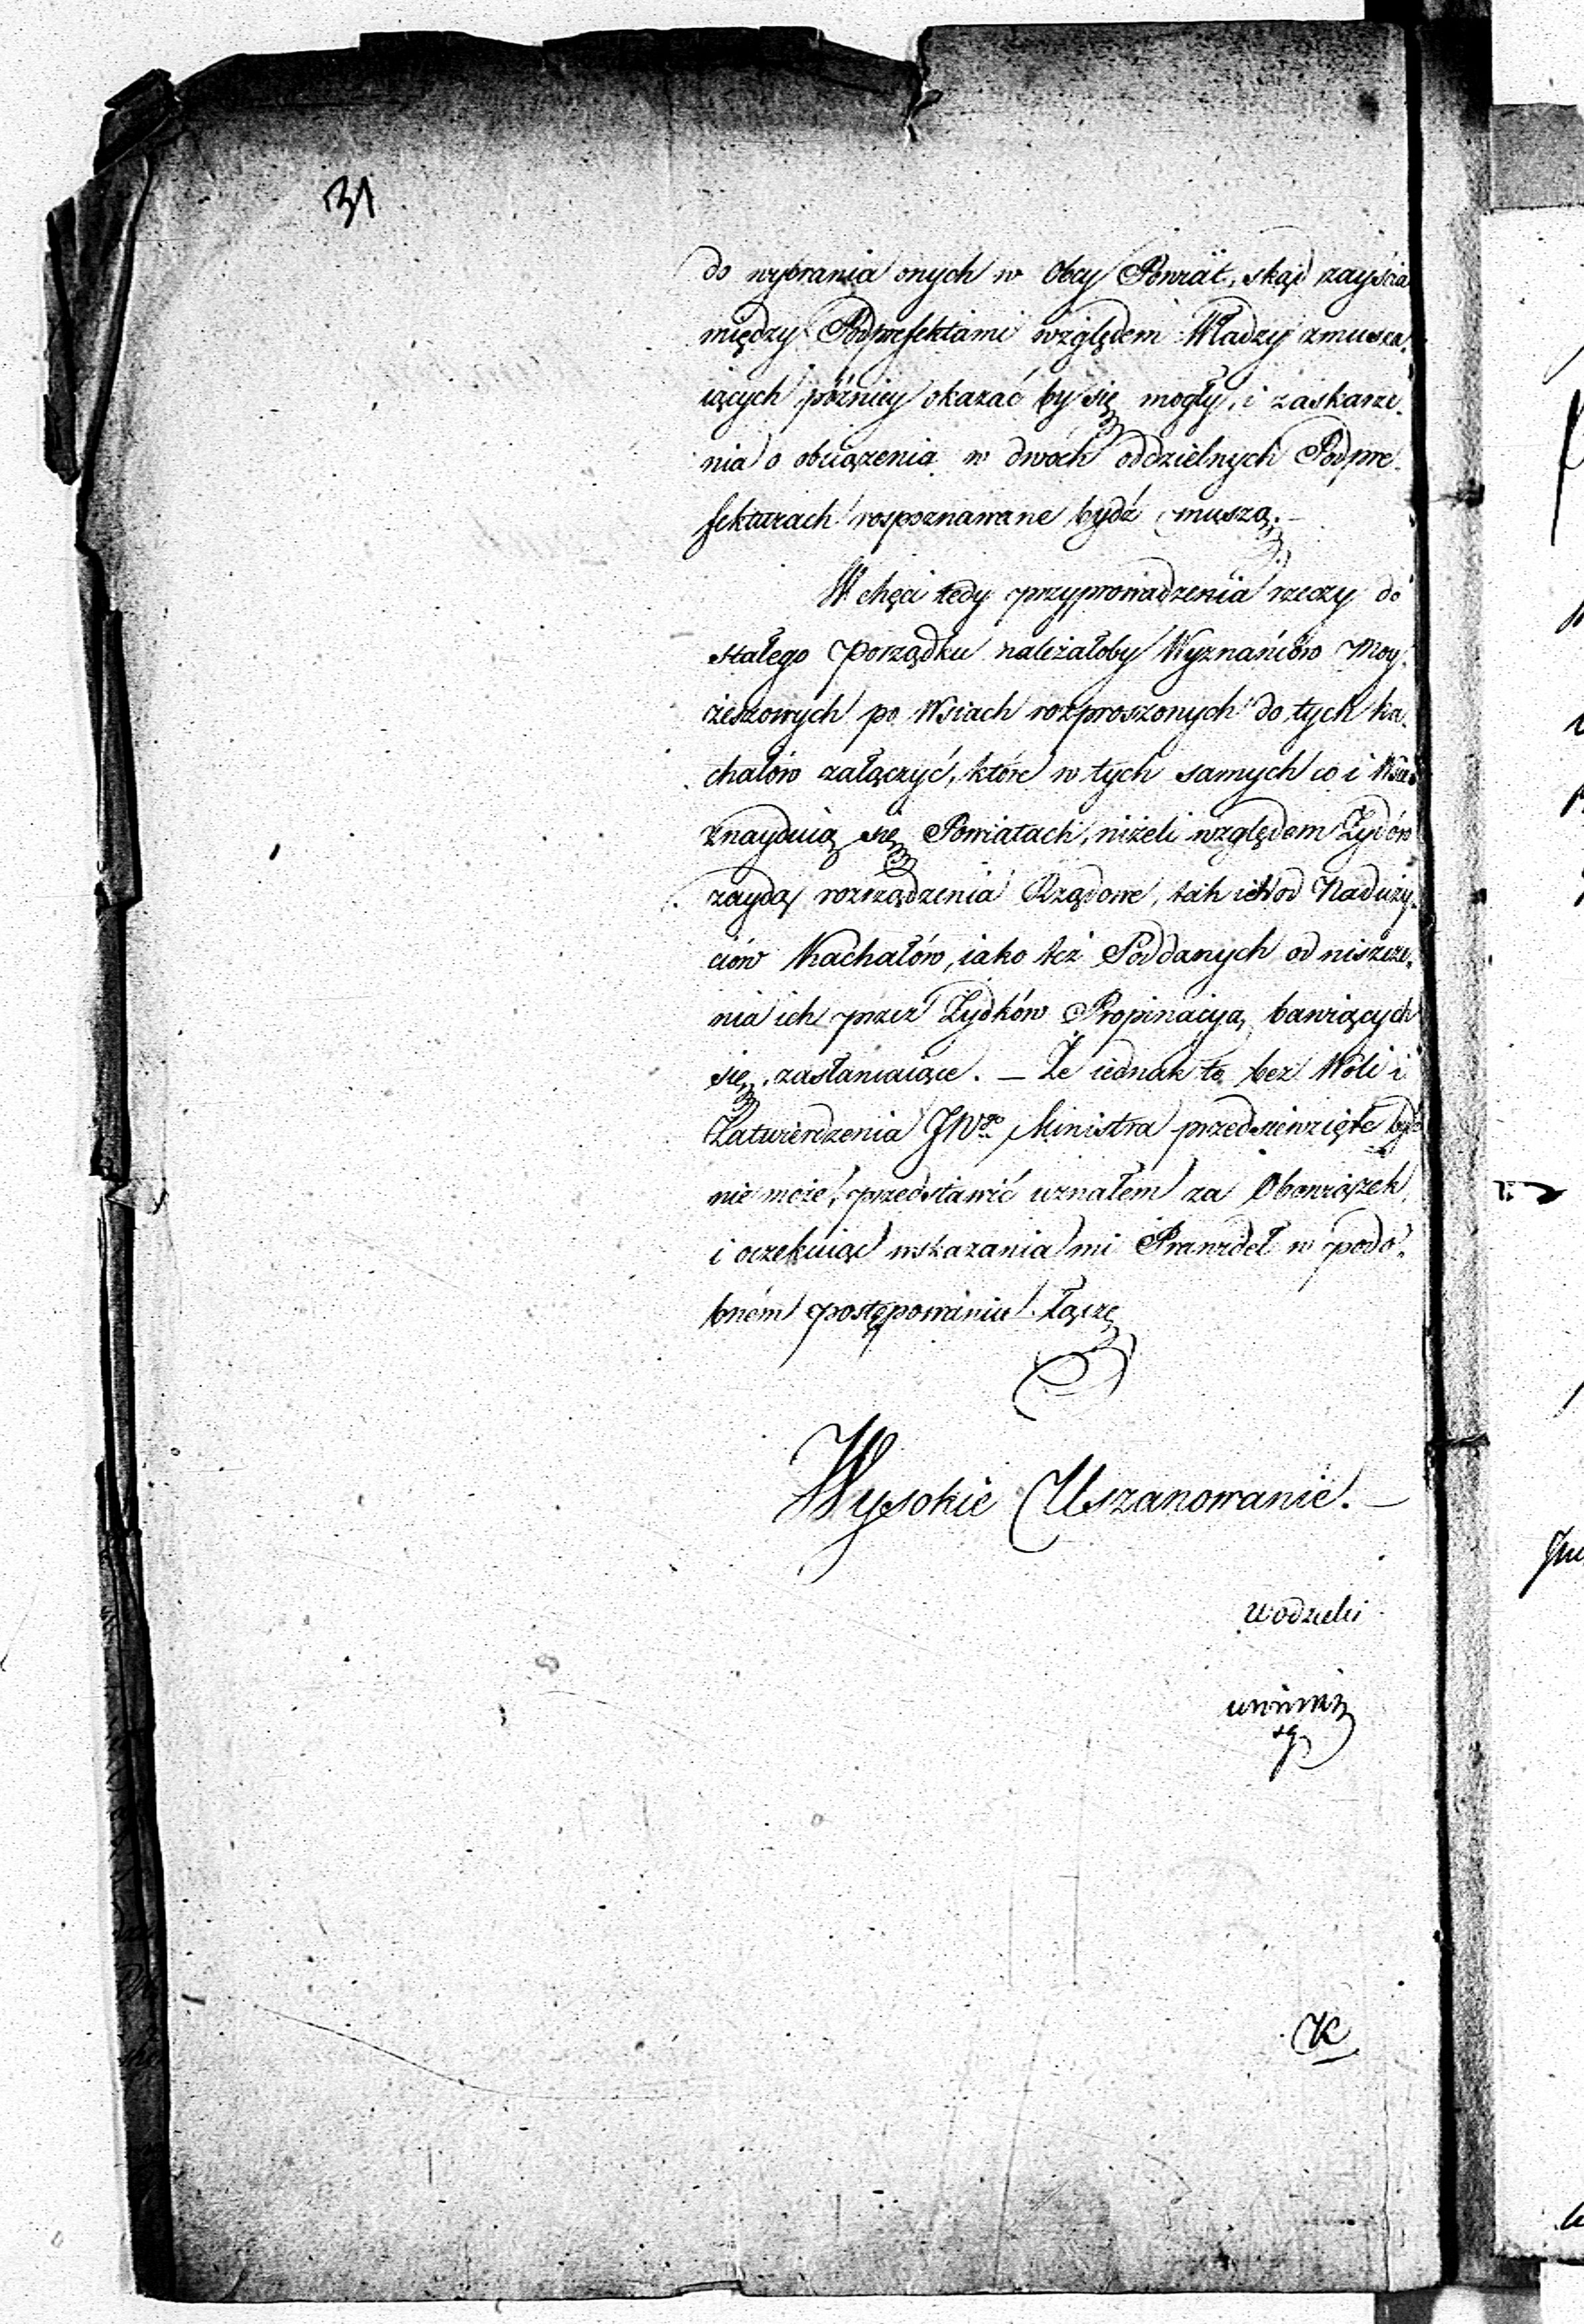 31
do wybrania onych w Obcy Powiat, skąd zayścia
między Podprefektami względem Władzy zmusza-
iących późniey okazać by się mogły, i zaskarże-
nia o obciążenia w dwóch oddzielnych Podpre-
fekturach rospoznawane bydź muszą. —
W chęci tedy przyprowadzenia rzeczy do
stałego porządku należałoby Wyznańców Moy-
żeszowych po Wsiach rozproszonych do tych ka-
chałów załączyć, które w tych samych co i Wsie
znayduią się Powiatach, niżeli względem Żydów
zaydą rozrządzenia Rządowe, tak ich od Naduży-
ciów Kachałów, iako też Poddanych od niszcze-
nia ich przez Żydków Propinacyą bawiących
się, zasłaniaiące. — Że iednak to bez Woli i
Zatwierdzenia JWgo Ministra przedsiewzięte bydź
nie może, przedstawić uznałem za Obowiązek,
i oczekuiąc wskazania mi Prawideł w podo-
bném postępowaniu łączę
Wysokie Uszanowanie. —
Wodzicki
K